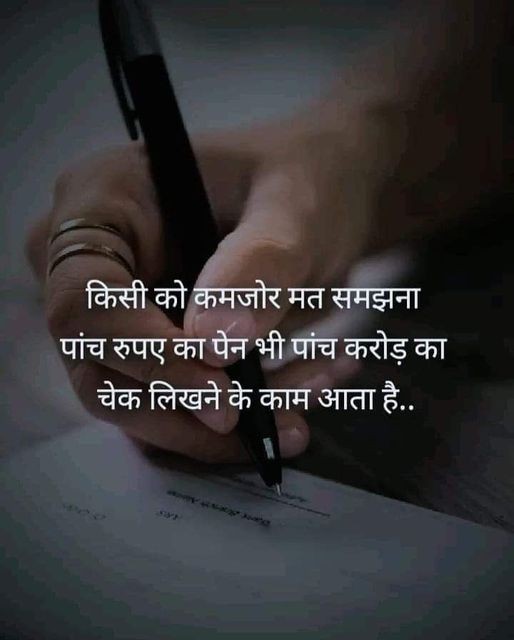 किसी को कमजोर मत समझना
पांच रुपए का पेन भी पांच करोड़ का
चेक लिखने के काम आता है..